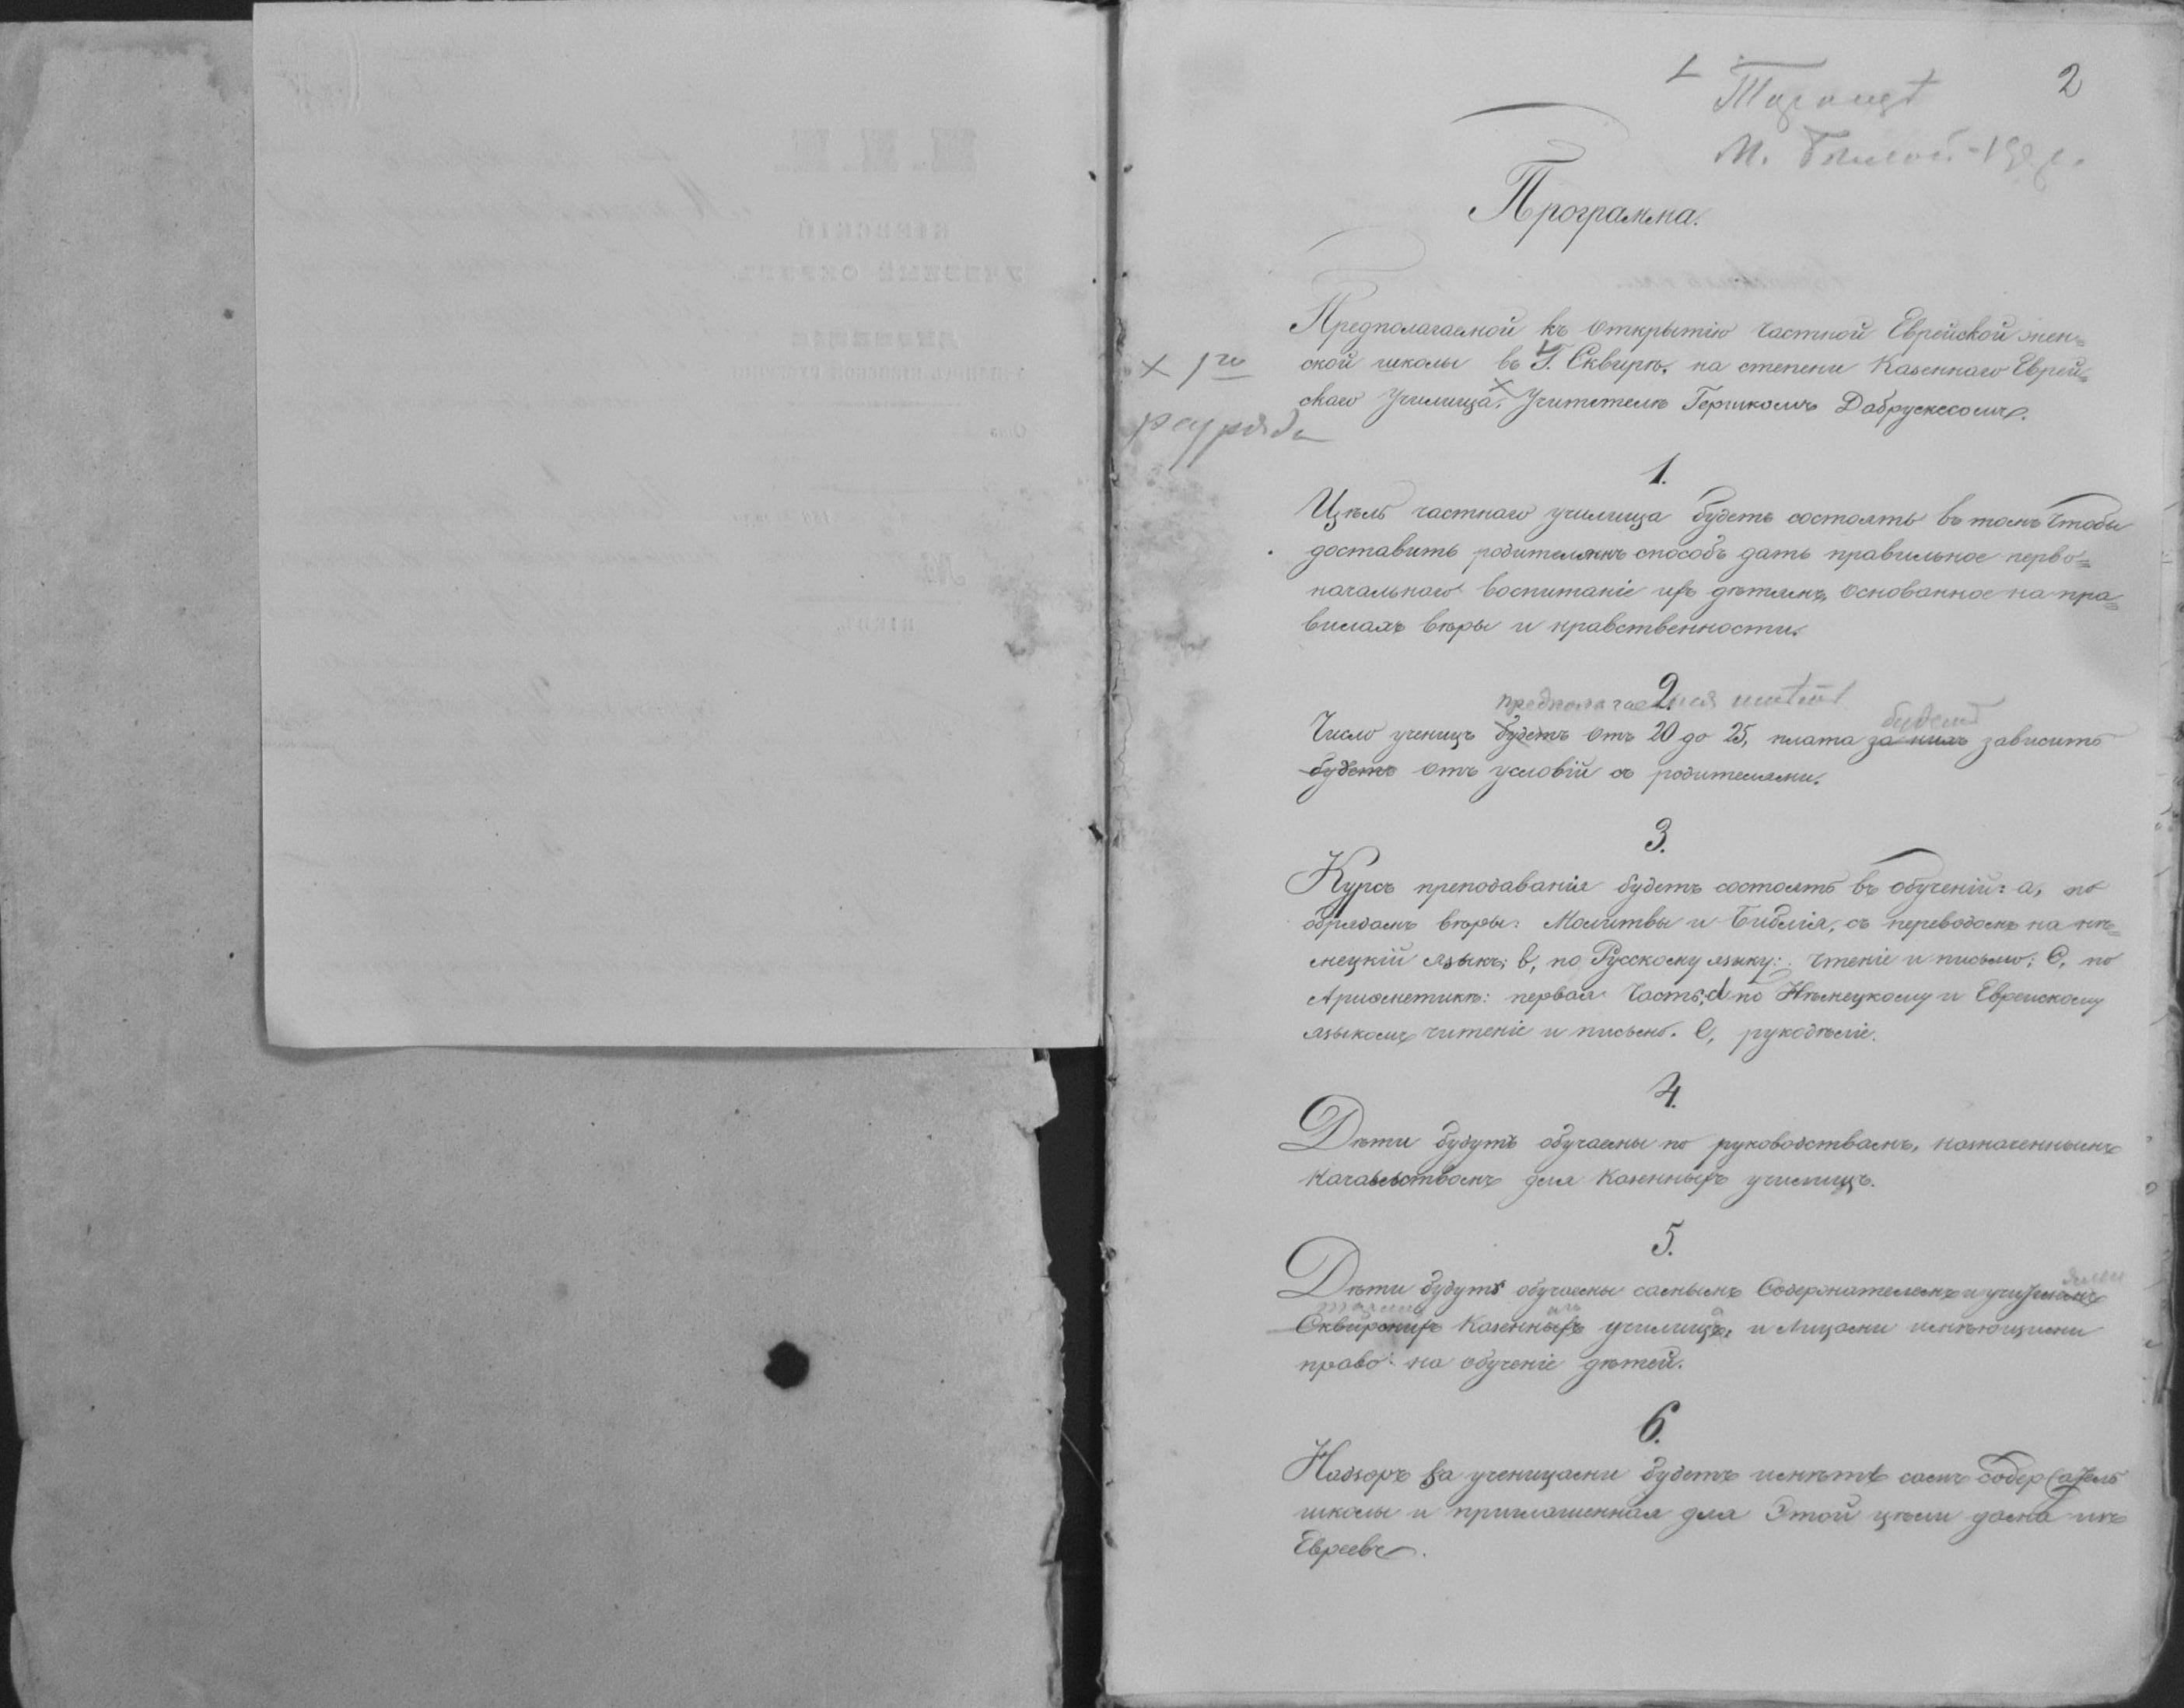 2
Программа.
Предполагаемой къ открытію частной Еврейской жен=
ской школы въ Г. Сквирѣ, на степени Казеннаго Еврей=
скаго Училища, Учителемъ Гершкомъ Добрускесомъ.
× 1го
разряда
1.
Цѣль частнаго училища будетъ состоять въ томъ чтобы
доставить родителямъ способъ дать правильное перво=
начальнаго воспитаніе ихъ дѣтямъ, основанное на пра=
вилахъ вѣры и нравственности.
2.
предполагается имѣть
будетъ
Число ученицъ будетъ отъ 20 до 25, плата за нихъ зависить
будетъ отъ условій съ родителями.
3.
Курсъ преподаванія будетъ состоять въ обученій: а, по
обрядамъ вѣры: Молитвы и Библія, съ переводомъ на нѣ=
мецкій языкъ; b, по Русскому языку: чтеніе и письмо; c, по
Ариѳметикѣ: первая часть; d по Нѣмецкому и Еврейскому
языкомъ читеніе и письмо. e, рукодѣліе.
4.
Дѣти будутъ обучаемы по руководствамъ, назначеннымъ
начальствомъ для казенныхъ училищъ.
5.
Дѣти будутъ обучаемы самымъ Содержателемъ и учителямъ
Сквирскихъ Казенныхъ училищъ, и Лицами имѣющими
право на обученіе дѣтей.
6.
Надзоръ за ученицами будетъ имѣть самъ содержатель
школы и приглашенная для этой цѣли дама изъ
Евреевъ.